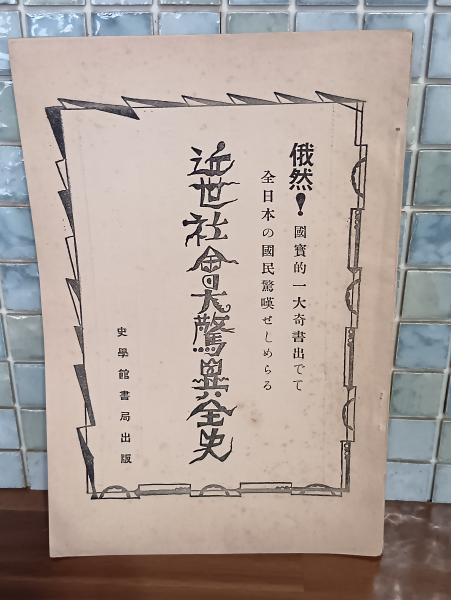 俄然！國寳的一大奇書出でて
全日本の國民驚嘆せしめらる
近世社會大驚異全史
史學館書局出版